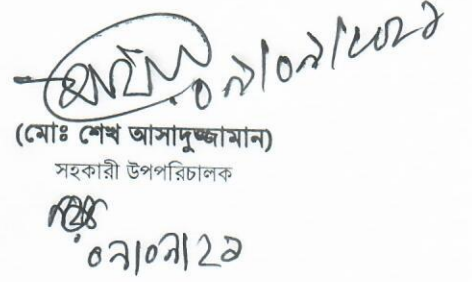 ০৯/০৯/২০২১
(মোঃ শেখ আসাদুজ্জামান)
সহকারী উপপরিচালক
০৯/০৯/২১